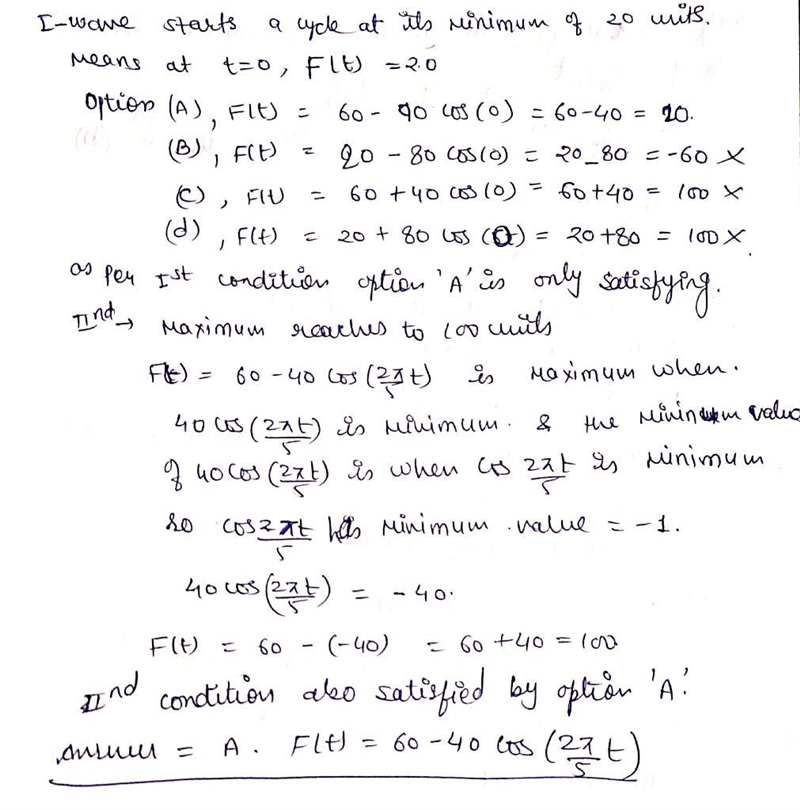 I-wave starts a cycle at its minimum of 20 units.
Means at t=0, F(t) = 20
Option (A), F(t) = 60 - 40 cos(0) = 60-40 = 20.
(B), F(t) = 20 - 80 cos(0) = 20-80 = -60 X
(C), F(t) = 60 + 40 cos(0) = 60+40 = 100 X
(d), F(t) = 20 + 80 cos(0) = 20+80 = 100 X.
as per Ist condition option 'A' is only satisfying.
IInd → Maximum reaches to 100 units
F(t) = 60 - 40 cos(2πt/5) is maximum when.
40 cos(2πt/5) is minimum. & the minimum value
of 40cos(2πt/5) is when cos 2πt/5 is minimum
so cos 2πt/5 has minimum value = -1.
40 cos(2πt/5) = -40.
F(t) = 60 - (-40) = 60 + 40 = 100
IInd condition also satisfied by option 'A'.
Answer = A. F(t) = 60 - 40 cos(2π/5 t)